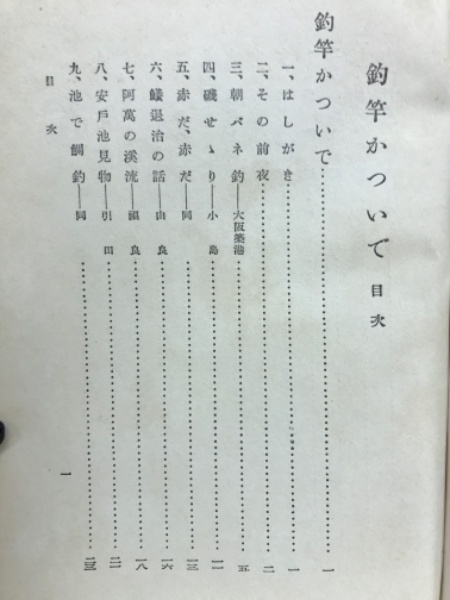 釣竿かついで 目次
釣竿かついで……一
一、はしがき……一
二、その前夜……二
三、朝バネ釣——大阪築港……五
四、磯せゝり——小島……一一
五、赤だ、赤だ——同……一三
六、鱶退治の話——由良……一六
七、阿萬の溪流——福良……一八
八、安戸池見物——引田……二一
九、池で鯛釣——同……二三
目次
一